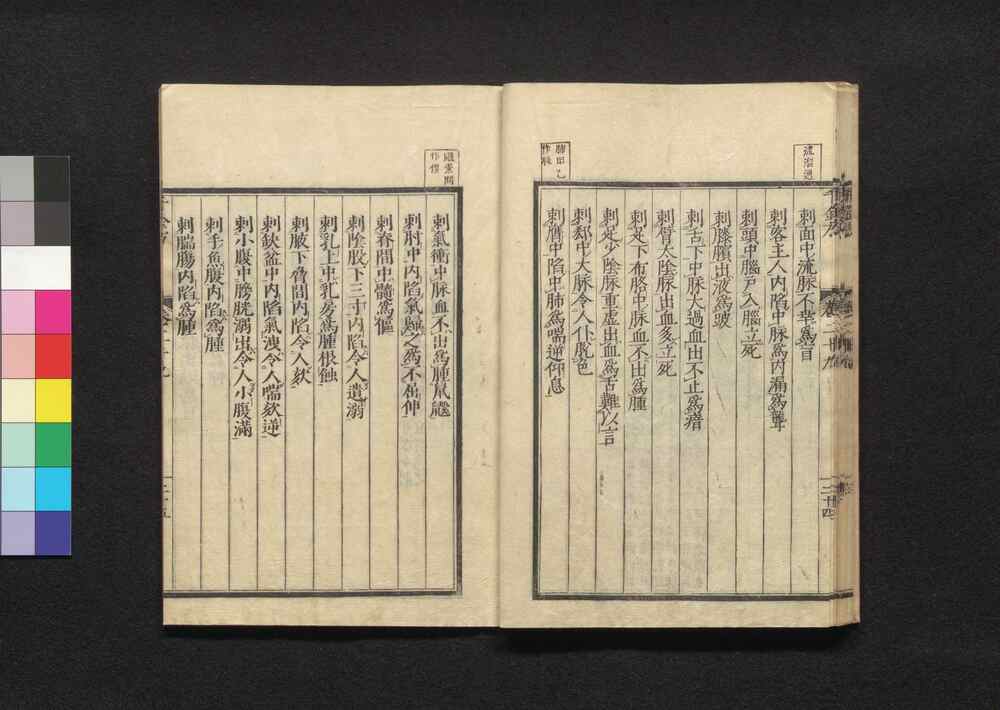 刺面中流脉不幸爲盲
刺客主人内陷中脉爲内漏爲聾
刺頭中腦戶入腦立死
刺膝臏出液爲跛
刺舌下中脉大過血出不止爲瘖
刺臂太陰脉出血多立死
刺足下布胳中脉血不出爲腫
刺足少陰脉重虛出血爲舌難以言
刺郄中大脉令人仆脱色
刺膺中陷中肺爲喘逆仰息
刺氣衝中脉血不出爲腫鼠
刺肘中内陷氣歸之爲不屈伸
刺脊間中髓爲傴
刺陰股下三寸内陷令人遺溺
刺乳上中乳房爲腫根蝕
刺腋下脅間内陷令人欬
刺缺盆中内陷氣洩令人喘欬逆
刺小腹中膀胱溺出令人小腹滿
刺手魚腹内陷爲腫
刺腨腸内陷爲腫